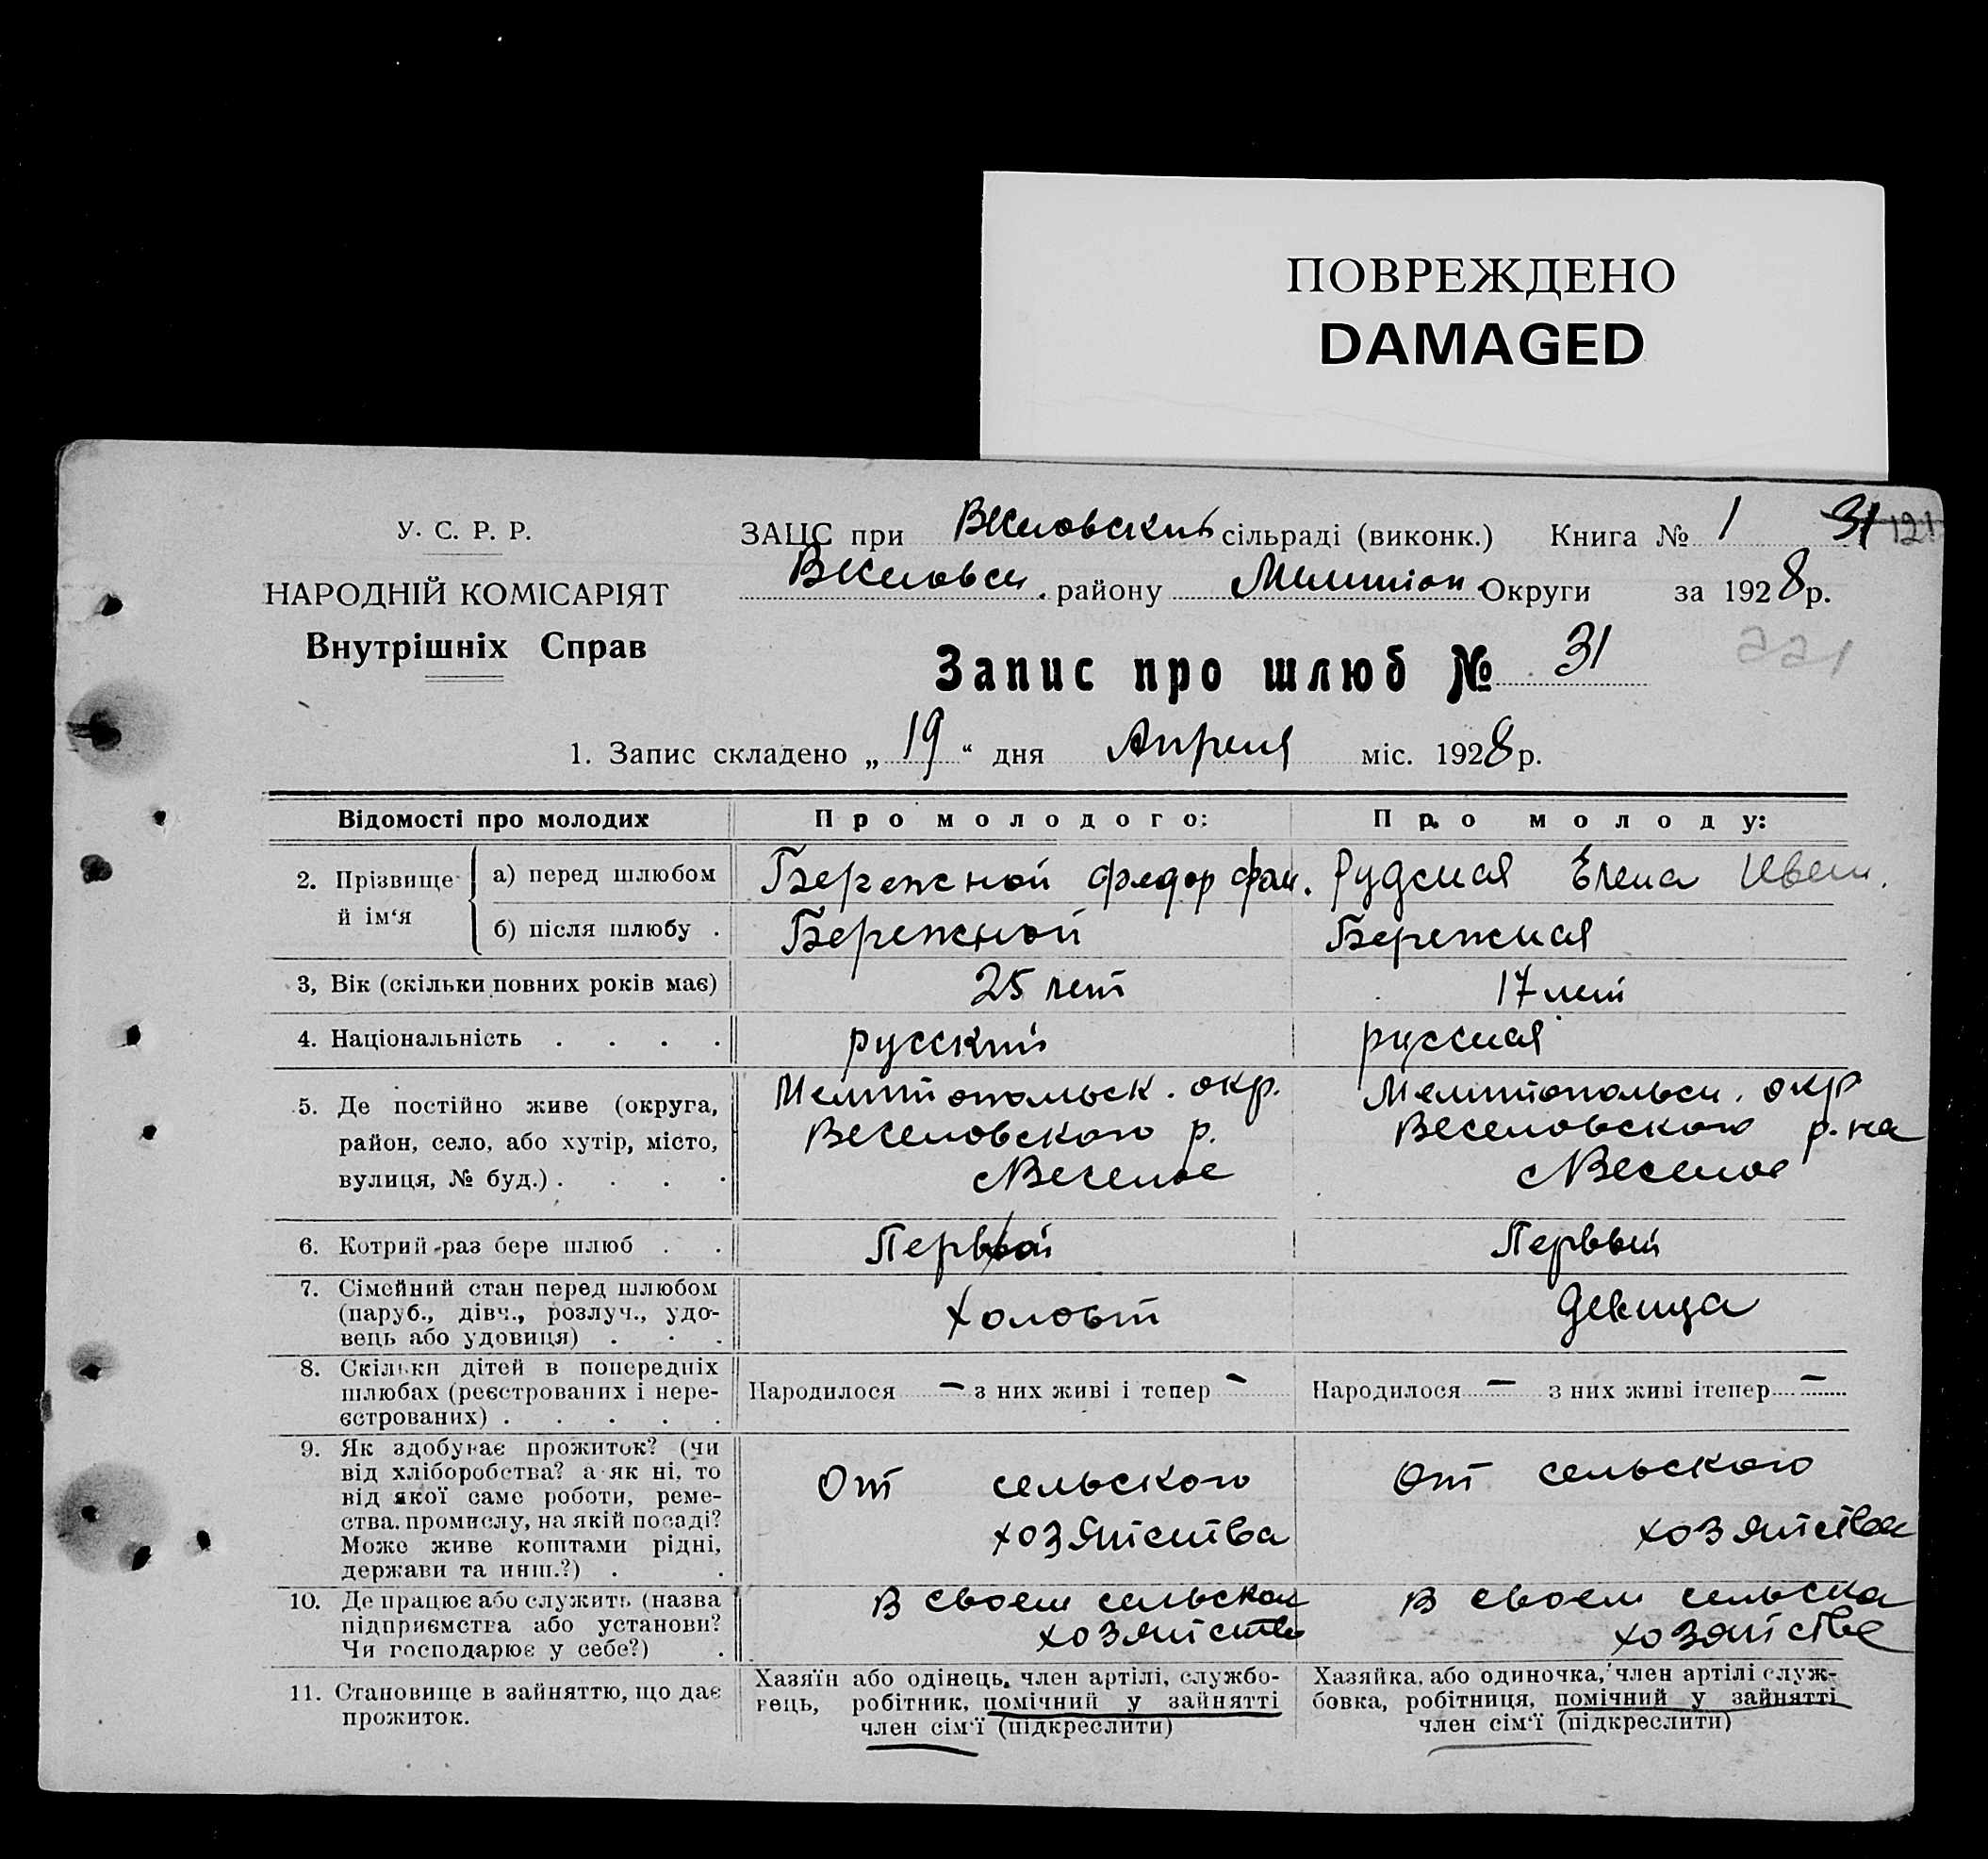 ПОВРЕЖДЕНО
DAMAGED
У. С. Р. Р.
НАРОДНІЙ КОМІСАРІЯТ
Внутрішніх Справ
ЗАЦС при Веселовский сільраді (виконк.) Книга № 1 31 121
Веселовск. району Мелитоп Округи за 1928 р.
221
Запис про шлюб № 31
1. Запис складено „19“ дня Апреля міс. 1928 р.
Відомості про молодих Про молодого: Про молоду:
2. Прізвище й ім‘я а) перед шлюбом Бережной Федор Рудская Елена
б) після шлюбу . Бережной Бережная
3, Вік (скільки повних років має) 25 лет 17 лет
4. Національність . . . . русский русская
5. Де постійно живе (округа, район, село, або хутір, місто, вулиця, № буд.) . . . .
Мелитопольск. окр.
Веселовского р.
с Веселое
Мелитопольск. окр
Веселовского р.на
с Веселое
6. Котрий раз бере шлюб . . Первой Первый
7. Сімейний стан перед шлюбом
(паруб., дівч., розлуч., удо-
вець або удовиця) . . .
Холост Девица
8. Скільки дітей в попередніх
шлюбах (реєстрованих і нере-
єстрованих) . . . . .
Народилося — з них живі і тепер —
Народилося — з них живі ітепер —
9. Як здобуває прожиток? (чи
від хліборобства? а як ні, то
від якої саме роботи, реме-
ства, промислу, на якій посаді?
Може живе коштами рідні,
держави та инш.?) . .
От сельского
хозяйства
От сельского
хозяйства
10. Де працює або служить (назва
підприємства або установи?
Чи господарює у себе?) .
В своем сельском
хозяйстве
В своем сельска
хозяйстве
11. Становище в зайняттю, що дає
прожиток.
Хазяїн або одінець, член артілі, службо-
вець, робітник, помічний у зайнятті
член сім‘ї (підкреслити)
Хазяйка, або одиночка, член артілі служ-
бовка, робітниця, помічний у зайнятті
член сім‘ї (підкреслити)